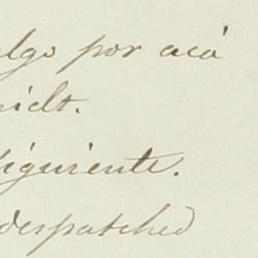 algo por acá
siguiente.
despatched